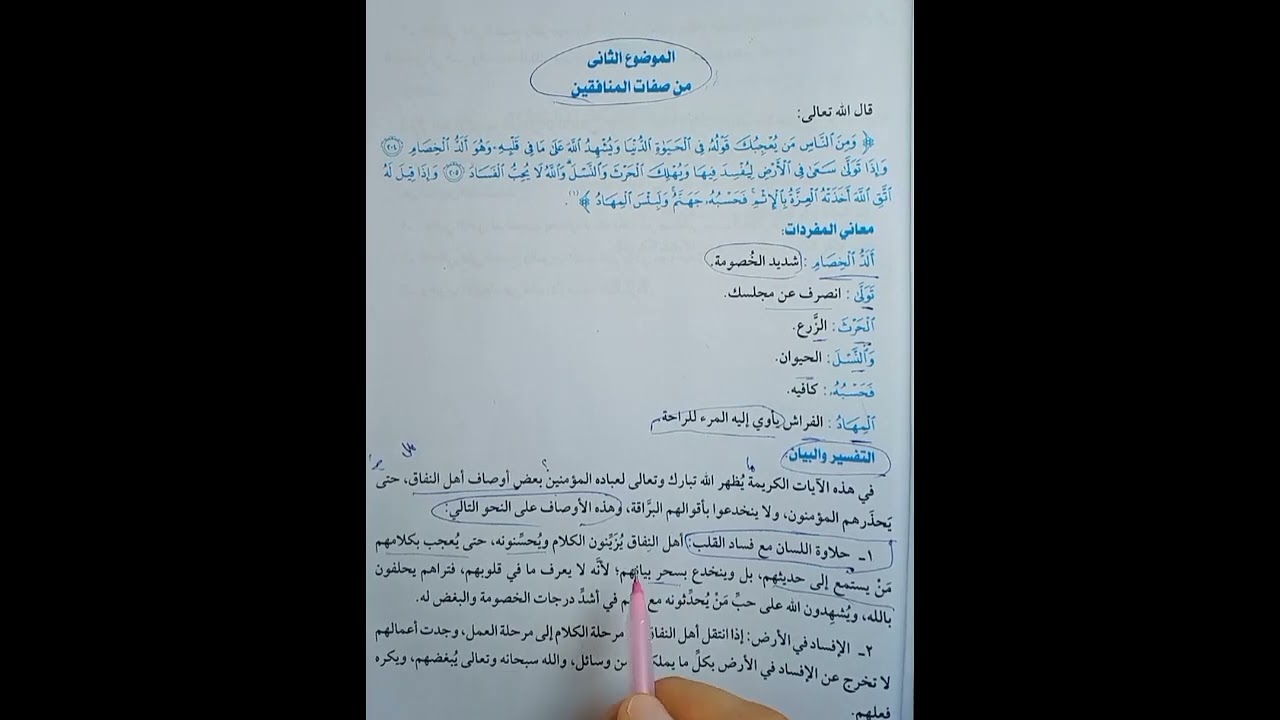 الموضوع الثانى
من صفات المنافقين
قال الله تعالى:
﴿ وَمِنَ ٱلنَّاسِ مَن يُعْجِبُكَ قَوْلُهُۥ فِى ٱلْحَيَوٰةِ ٱلدُّنْيَا وَيُشْهِدُ ٱللَّهَ عَلَىٰ مَا فِى قَلْبِهِۦ وَهُوَ أَلَدُّ ٱلْخِصَامِ ٢٠٤
وَإِذَا تَوَلَّىٰ سَعَىٰ فِى ٱلْأَرْضِ لِيُفْسِدَ فِيهَا وَيُهْلِكَ ٱلْحَرْثَ وَٱلنَّسْلَ ۗ وَٱللَّهُ لَا يُحِبُّ ٱلْفَسَادَ ٢٠٥ وَإِذَا قِيلَ لَهُ
ٱتَّقِ ٱللَّهَ أَخَذَتْهُ ٱلْعِزَّةُ بِٱلْإِثْمِ ۚ فَحَسْبُهُۥ جَهَنَّمُ ۚ وَلَبِئْسَ ٱلْمِهَادُ ﴾(١).
معاني المفردات:
أَلَدُّ ٱلْخِصَامِ : شديد الخُصومة.
تَوَلَّىٰ : انصرف عن مجلسك.
ٱلْحَرْثَ : الزَّرع.
وَٱلنَّسْلَ : الحيوان.
فَحَسْبُهُۥ : كافيه.
ٱلْمِهَادُ : الفراش يأوي إليه المرء للراحة
التفسير والبيان:
في هذه الآيات الكريمة يُظهر الله تبارك وتعالى لعباده المؤمنين بعض أوصاف أهل النفاق، حتى
يَحذَرهم المؤمنون، ولا ينخدعوا بأقوالهم البرَّاقة، وهذه الأوصاف على النحو التالي:
١ـ حلاوة اللسان مع فساد القلب: أهل النِفاق يُزَيِّنون الكلام ويُحسِّنونه، حتى يُعجب بكلامهم
مَنْ يستمع إلى حديثهم، بل وينخدع بسحر بيانهم؛ لأنَّه لا يعرف ما في قلوبهم، فتراهم يحلفون
بالله، ويُشهِدون الله على حبِّ مَنْ يُحدِّثونه مع في أشدِّ درجات الخصومة والبغض له.
٢ـ الإفساد في الأرض: إذا انتقل أهل النفاق مرحلة الكلام إلى مرحلة العمل، وجدت أعمالهم
لا تخرج عن الإفساد في الأرض بكلِّ ما من وسائل، والله سبحانه وتعالى يُبغضهم، ويكره
فعلهم.